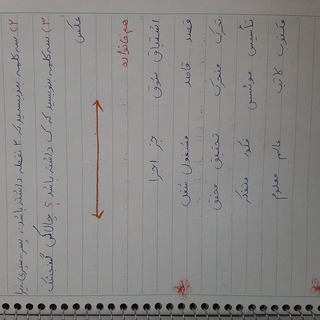 ۲) سه کلمه بنویسید که ۲ نقطه داشته باشد
۳) سه کلمه بنویسید که ک داشته باشد؟ چالاکی گنجشک
عکس
هم خانواده
اشتیاق شوق جز اجزا
قصد قاصد مشغول شغل
تحرک متحرک تحقیق محقق
تأسیس موسس فکور متفکر
مکتوب کاتب عالم معلوم